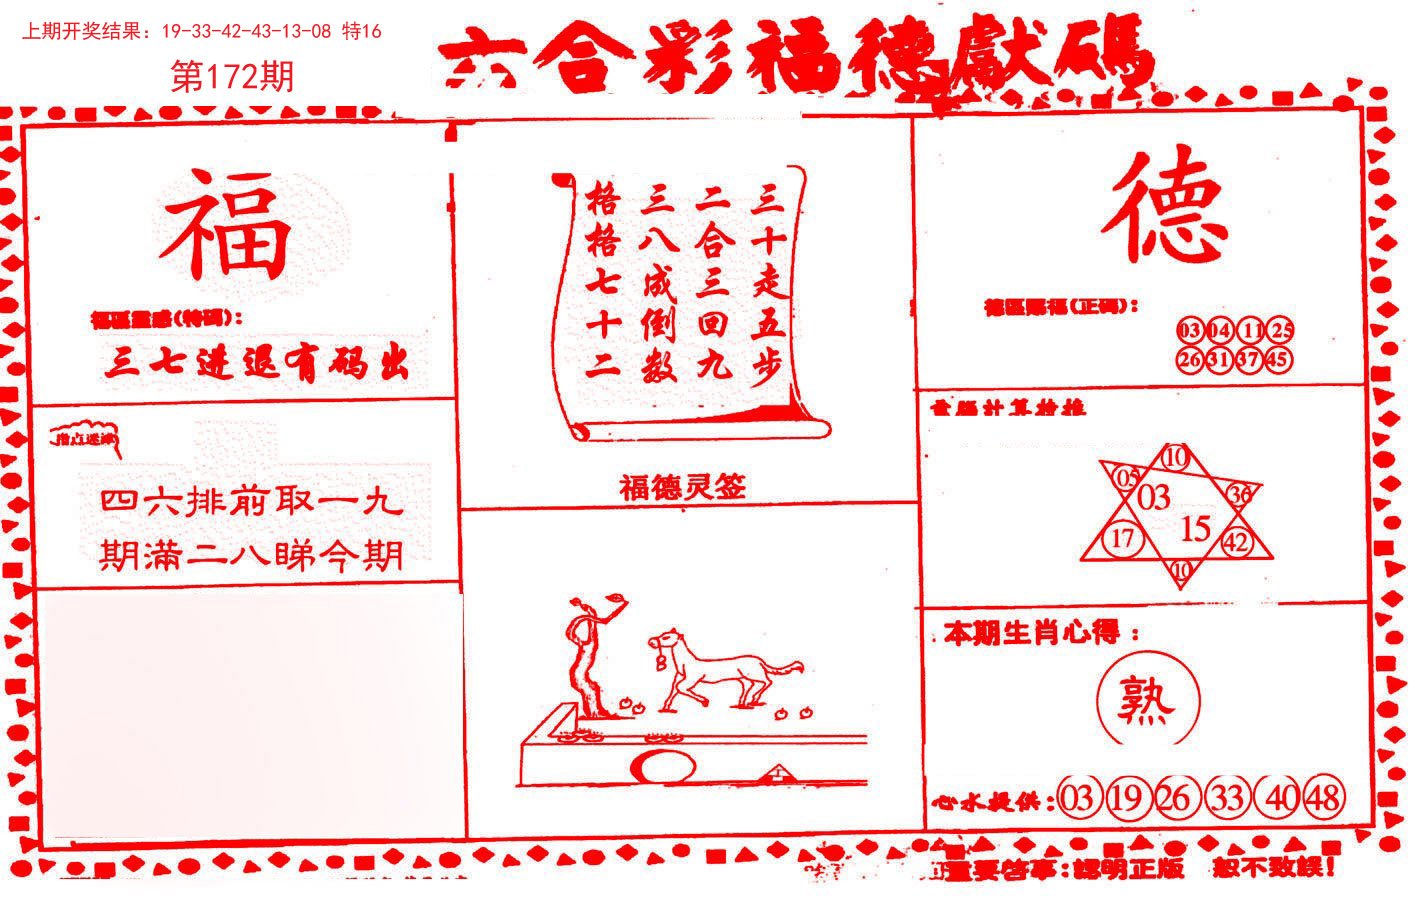 上期开奖结果：19-33-42-43-13-08 特16
第172期
六合彩福德獻碼
福
福區靈感(特碼)：
三七进退有码出
指点迷津
四六排前取一九
期滿二八睇今期
三十走五步
二合三回九
三八成倒数
格格七十二
福德灵签
德
德區赐福(正码)：
03 04 11 25
26 31 37 45
電腦計算推
10
05 03 36
15
17 42
10
本期生肖心得：
熟
心水提供：03 19 26 33 40 48
重要啓事：認明正版 恕不致誤！